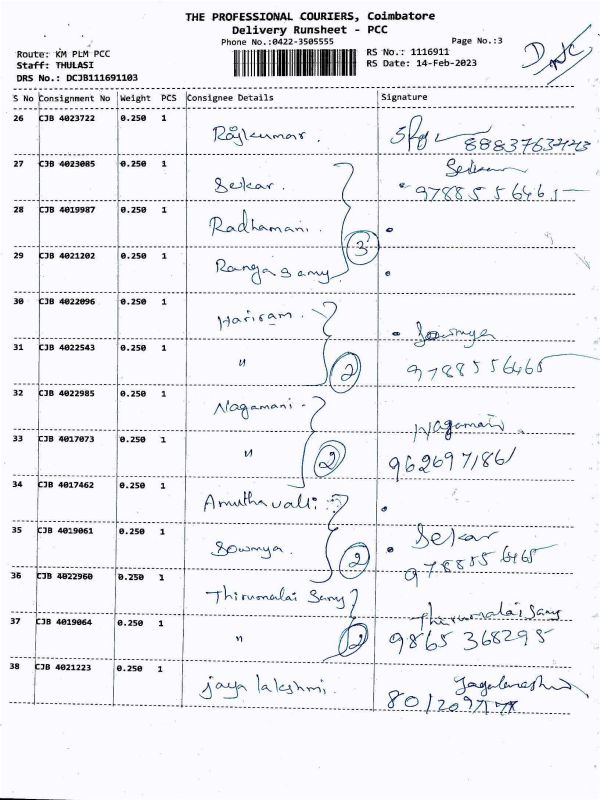 THE PROFESSIONAL COURIERS, Coimbatore
Delivery Runsheet - PCC
Phone No.:0422-3505555
Page No.:3
Route: KM PLM PCC
RS No.: 1116911
Staff: THULASI
RS Date: 14-Feb-2023
DRS No.: DCJB111691103
S No Consignment No Weight PCS Consignee Details Signature
26 CJB 4023722 0.250 1 Rajkumar.
27 CJB 4023085 0.250 1 Sekar. Sekar
9788556465
28 CJB 4019987 0.250 1 Radhamani.
3
29 CJB 4021202 0.250 1 Rangasamy
30 CJB 4022096 0.250 1 Hariram. Sowmya
31 CJB 4022543 0.250 1 " 2 9788556465
32 CJB 4022985 0.250 1 Nagamani - Nagamani
33 CJB 4017073 0.250 1 " 2 9626971861
34 CJB 4017462 0.250 1 Amuthavalli
35 CJB 4019061 0.250 1 Sowmya. 2 Sekar
9788556465
36 CJB 4022960 0.250 1 Thirumalai Samy Thirumalai Samy
37 CJB 4019064 0.250 1 " 2 9865 368295
38 CJB 4021223 0.250 1 jaya lakshmi.